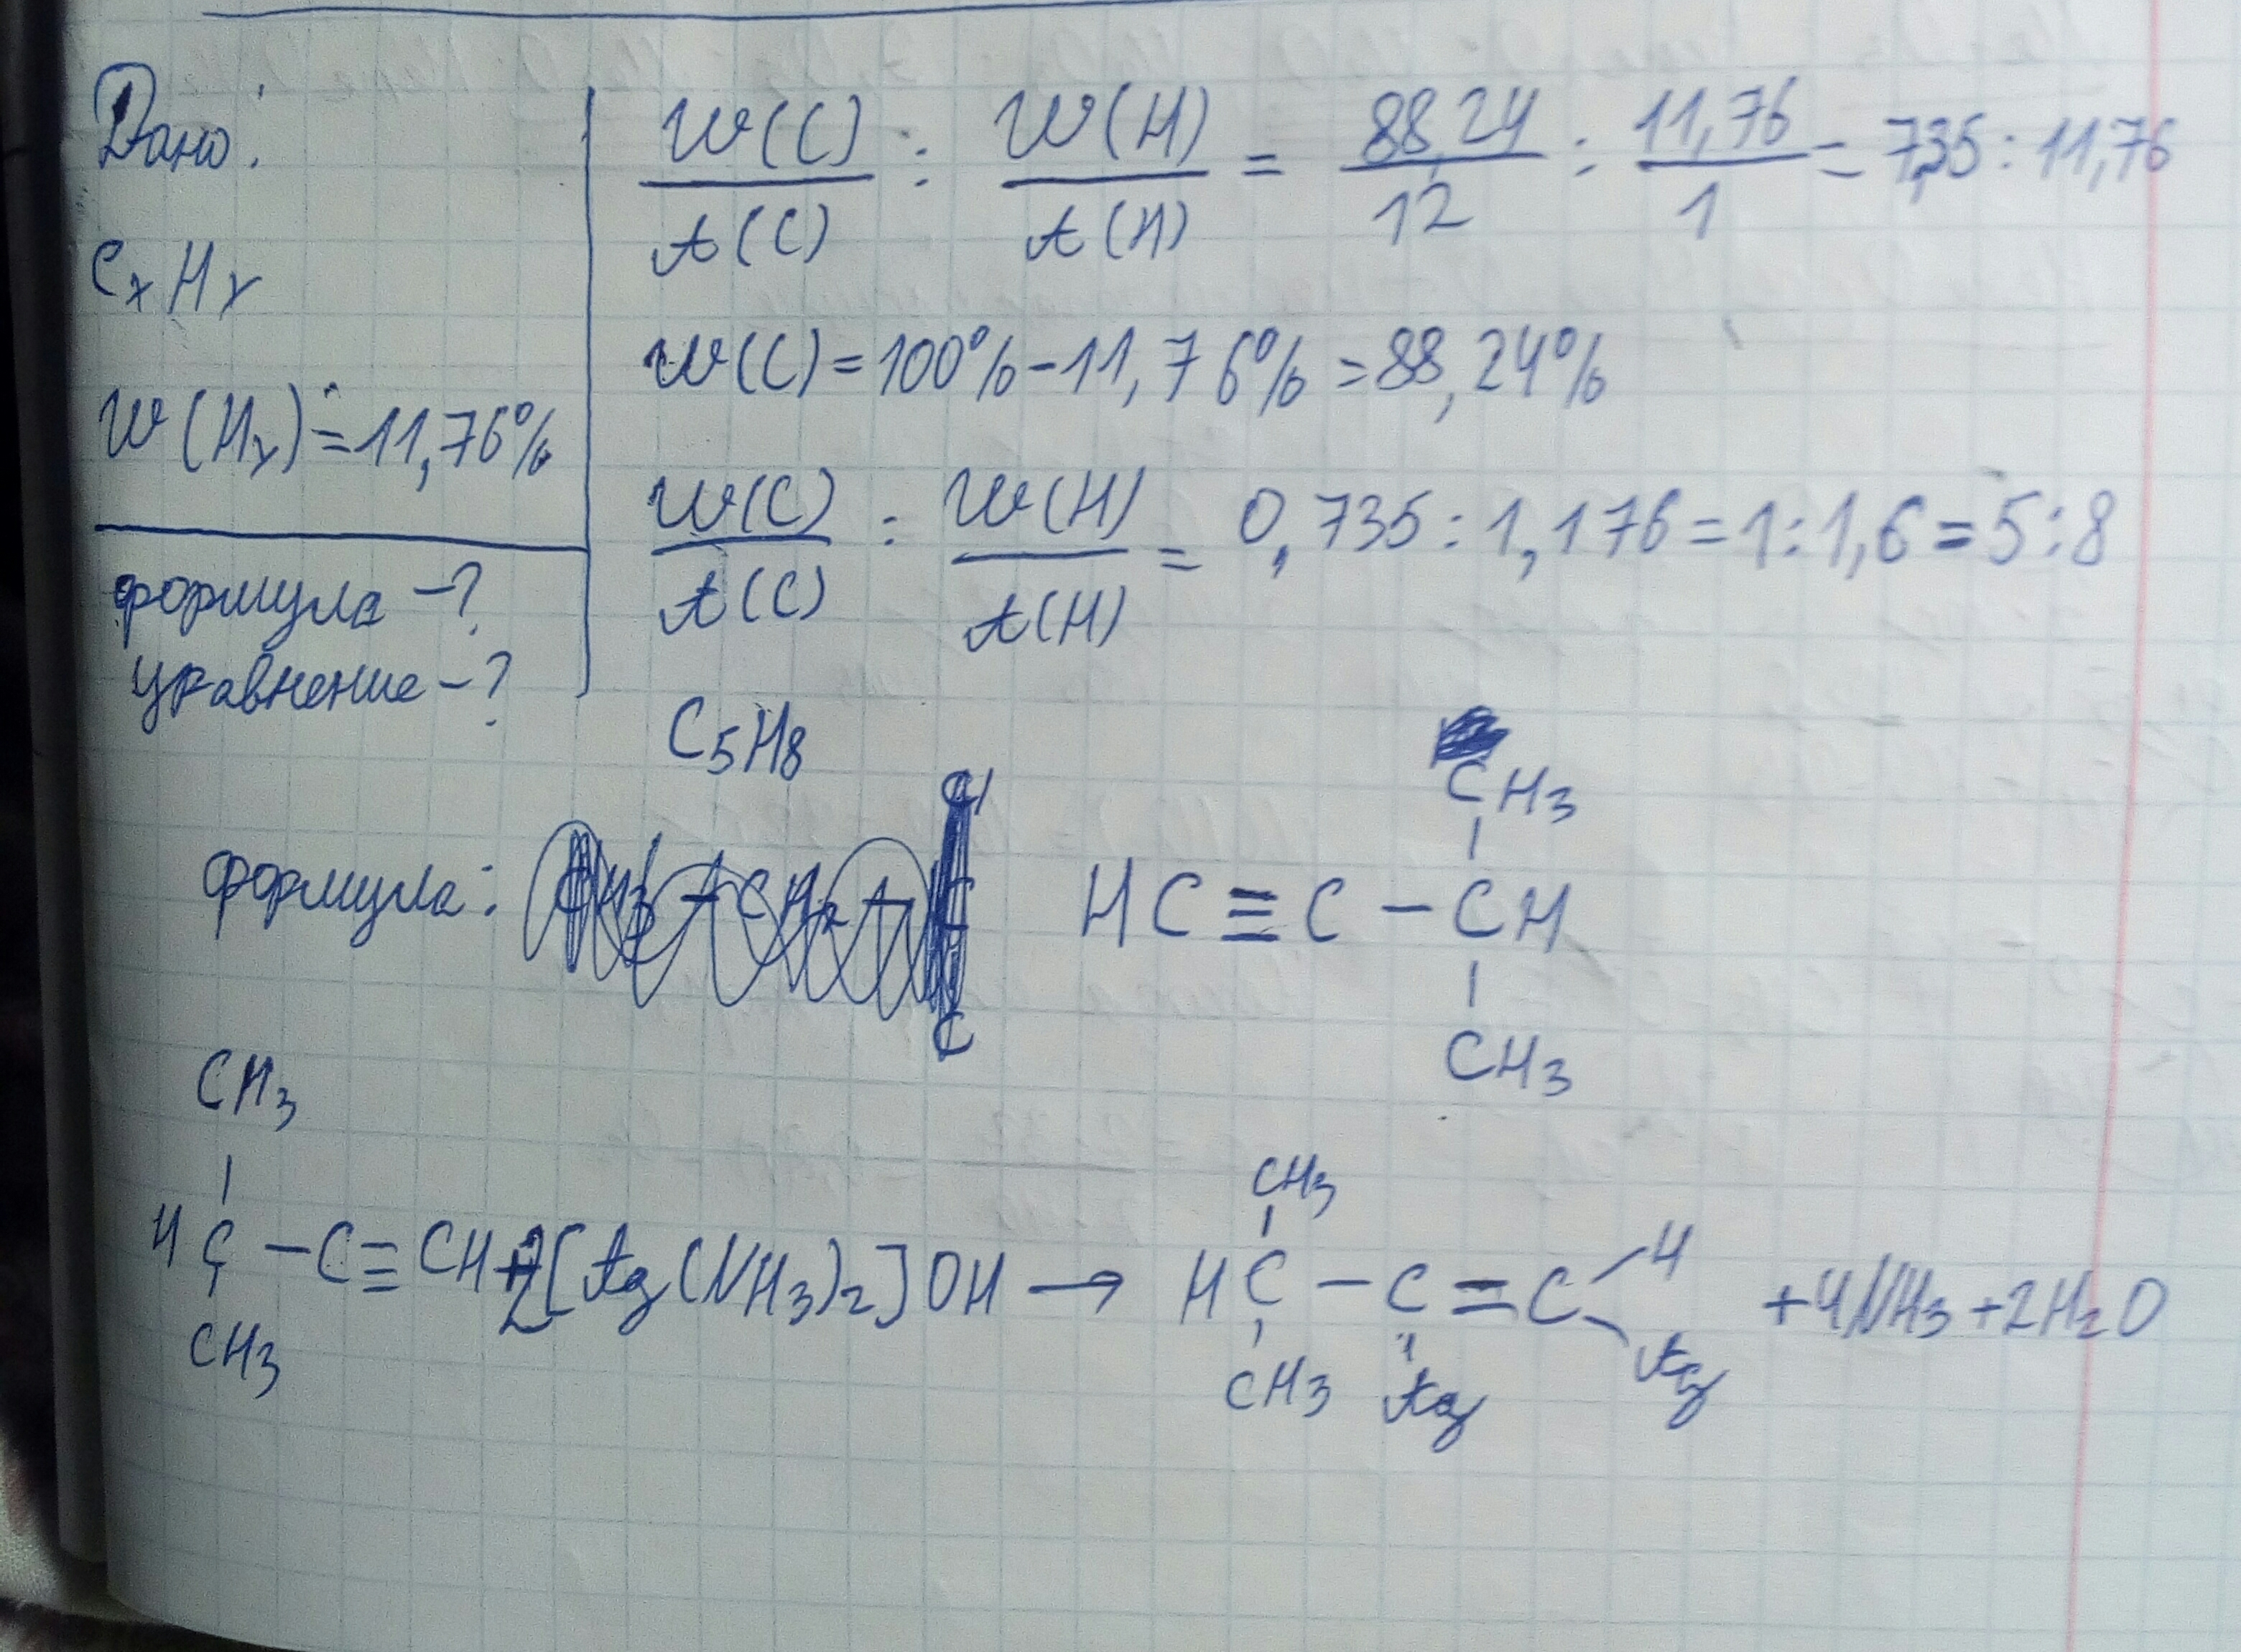 Дано:
CxHy
W(Hy)=11,76%
формула -?
уравнение -?
W(C)/A(C) : W(H)/A(H) = 88,24/12 : 11,76/1 = 7,35 : 11,76
W(C)=100%-11,76%=88,24%
W(C)/A(C) : W(H)/A(H) = 0,735:1,176=1:1,6=5:8
C5H8
формула:
CH3
HC≡C-CH
CH3
CH3
HC-C≡CH+2[Ag(NH3)2]OH→
CH3
CH3
HC-C=C
H
Ag
CH3
Ag
+4NH3+2H2O